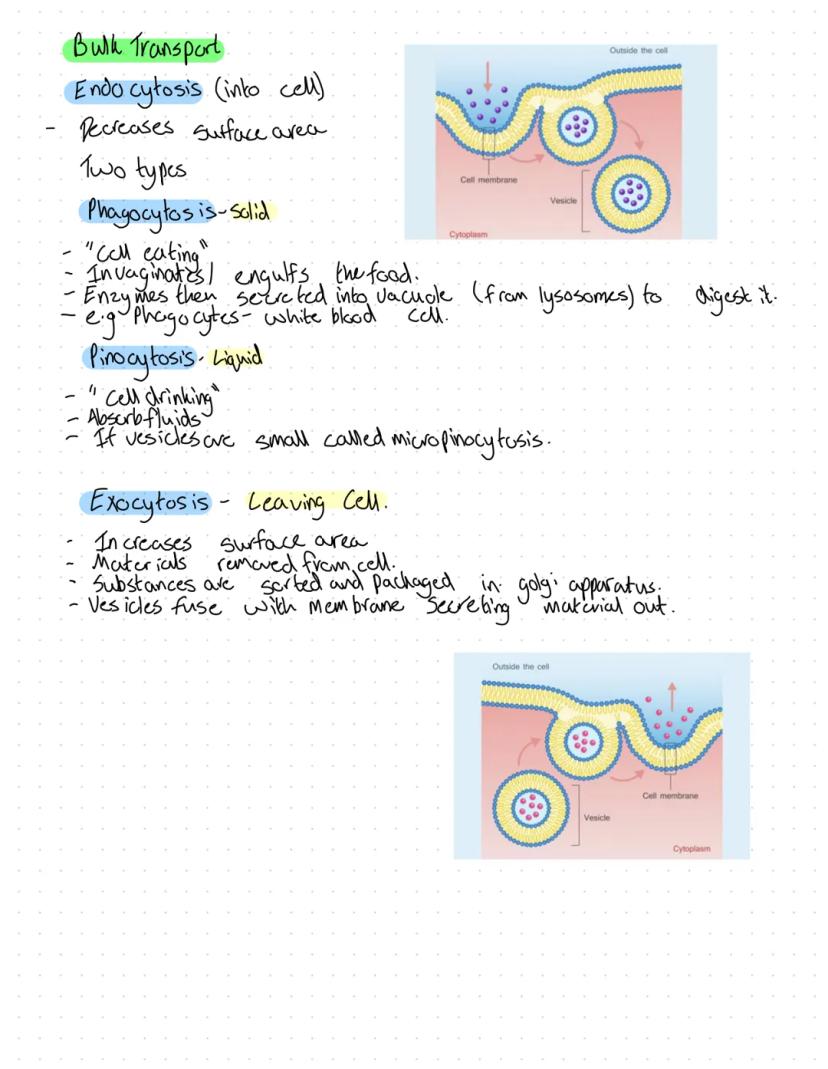 Bulk Transport
Endocytosis (into cell)
- Decreases surface area
Two types
Phagocytosis - Solid
- "Cell eating"
- Invaginates / engulfs the food.
- Enzymes then secreted into vacuole (from lysosomes) to digest it.
- e.g Phagocytes - white blood cell.
Pinocytosis - Liquid
- "cell drinking"
- Absorb fluids
- If vesicles are small called micropinocytosis.
Exocytosis - Leaving Cell.
- Increases surface area
- Materials removed from cell.
- Substances are sorted and packaged in golgi apparatus.
- Vesicles fuse with membrane secreting material out.
Outside the cell
Cell membrane
Vesicle
Cytoplasm
Outside the cell
Cell membrane
Vesicle
Cytoplasm